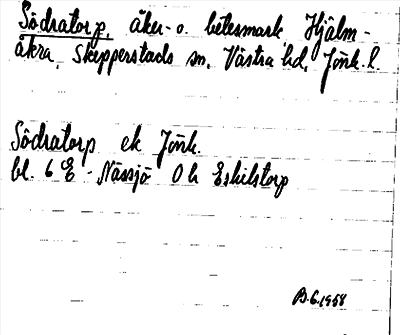 Södratorp, åker- o. betesmark Hjälm-
åkra, Skepperstads sn, Västra hd, Jönk. l.
Södratorp ek Jönk.
bl. 6 E - Nässjö Oh Eskilstorp
B.G.1958